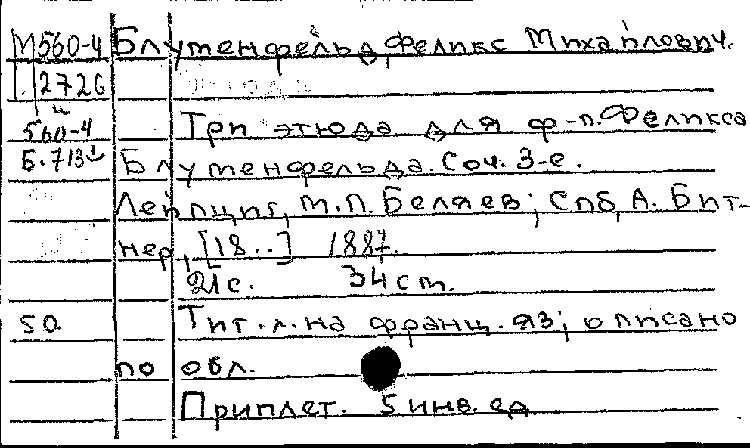 М560-4 Блуменфельд, Феликс Михайлович.
2726
560-4 Три этюда для ф-п. Феликса
Б.713 Блуменфельда. Соч. 3-е.
Лейпциг, М.П. Беляев; Спб, А. Бит-
нер, [18..] 1887.
21с. 34 ст.
50. Тит. л. на франц. яз; описано
по обл.
Приплет. 5 инв. ед